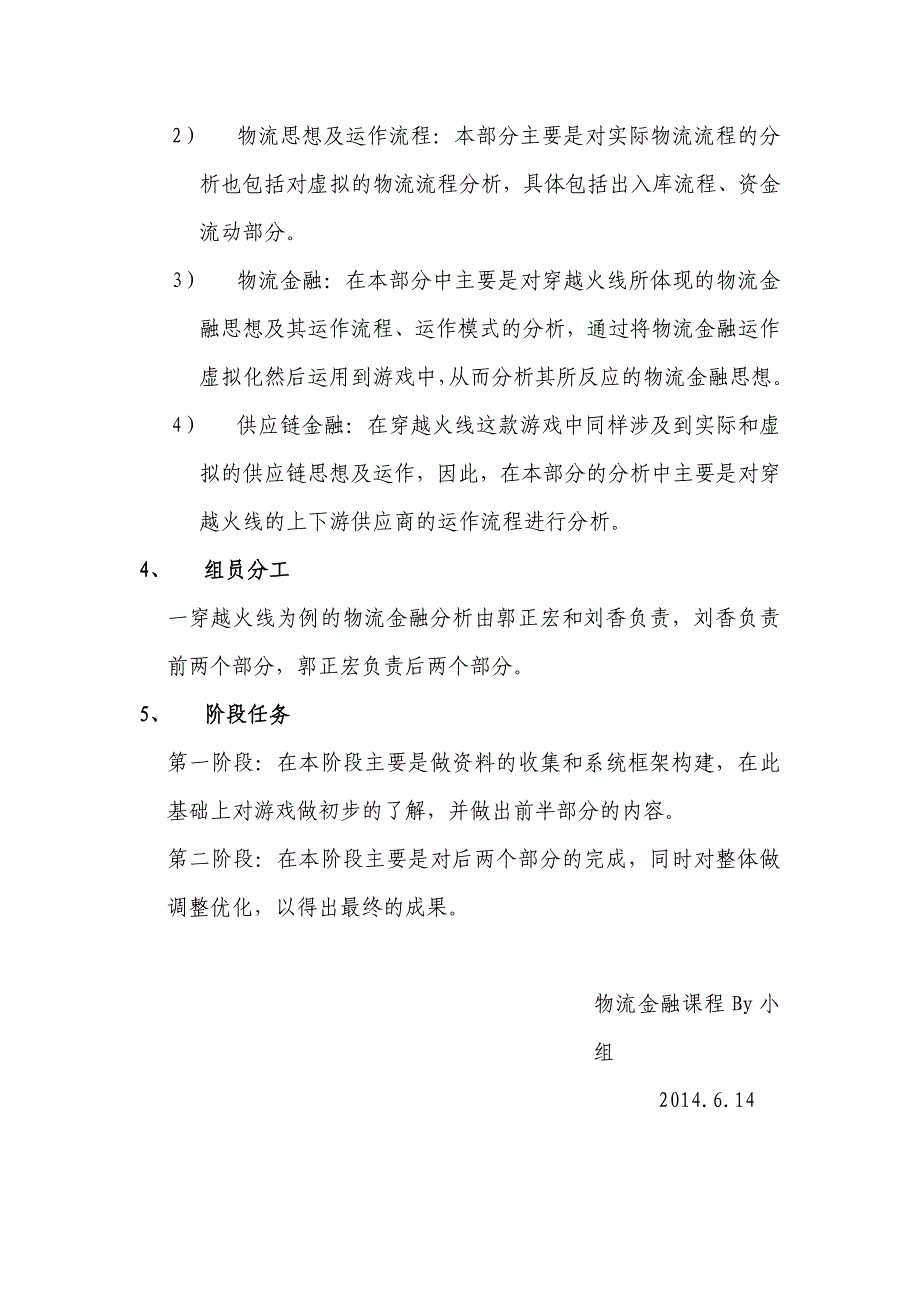 2） 物流思想及运作流程：本部分主要是对实际物流流程的分
析也包括对虚拟的物流流程分析，具体包括出入库流程、资金
流动部分。
3） 物流金融：在本部分中主要是对穿越火线所体现的物流金
融思想及其运作流程、运作模式的分析，通过将物流金融运作
虚拟化然后运用到游戏中，从而分析其所反应的物流金融思想。
4） 供应链金融：在穿越火线这款游戏中同样涉及到实际和虚
拟的供应链思想及运作，因此，在本部分的分析中主要是对穿
越火线的上下游供应商的运作流程进行分析。
4、 组员分工
一穿越火线为例的物流金融分析由郭正宏和刘香负责，刘香负责
前两个部分，郭正宏负责后两个部分。
5、 阶段任务
第一阶段：在本阶段主要是做资料的收集和系统框架构建，在此
基础上对游戏做初步的了解，并做出前半部分的内容。
第二阶段：在本阶段主要是对后两个部分的完成，同时对整体做
调整优化，以得出最终的成果。
物流金融课程 By 小
组
2014.6.14